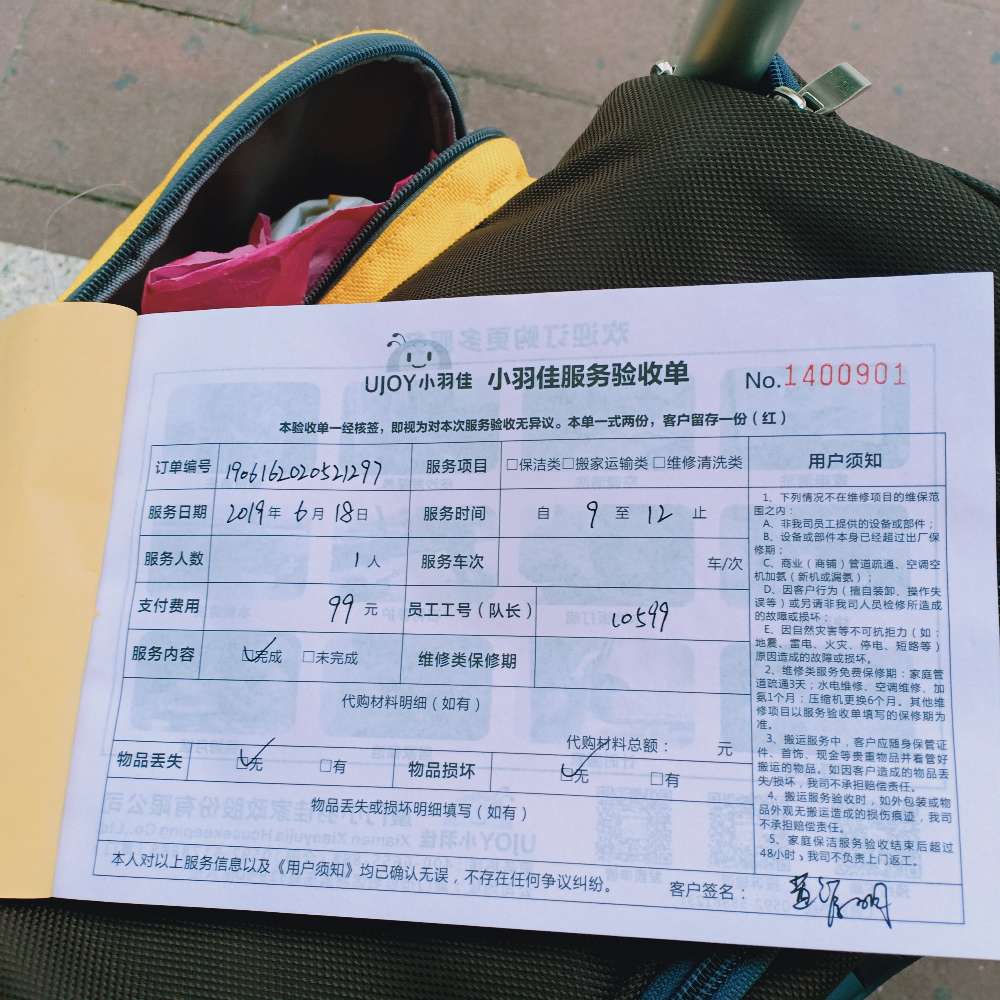 UJOY小羽佳 小羽佳服务验收单 No.1400901
本验收单一经核签，即视为对本次服务验收无异议。本单一式两份，客户留存一份（红）
订单编号 190616202052l297 服务项目 □保洁类□搬家运输类 □维修清洗类
服务日期 2019年 6月 18日 服务时间 自 9 至 12 止
服务人数 1人 服务车次 车/次
支付费用 99元 员工工号（队长） 10599
服务内容 ☑完成 □未完成 维修类保修期
代购材料明细（如有）
代购材料总额： 元
物品丢失 ☑无 □有 物品损坏 ☑无 □有
物品丢失或损坏明细填写（如有）
本人对以上服务信息以及《用户须知》均已确认无误，不存在任何争议纠纷。 客户签名：
用户须知
1、下列情况不在维修项目的维保范
围之内：
A、非我司员工提供的设备或部件；
B、设备或部件本身已经超过出厂保
修期；
C、商业（商铺）管道疏通、空调空
机加氨（新机或漏氨）；
D、因客户行为（擅自装卸、操作失
误等）或另请非我司人员检修所造成
的故障或损坏；
E、因自然灾害等不可抗拒力（如：
地震、雷电、火灾、停电、短路等）
原因造成的故障或损坏。
2、维修类服务免费保修期：家庭管
道疏通3天；水电维修、空调维修、加
氨1个月；压缩机更换6个月。其他维
修项目以服务验收单填写的保修期为
准。
3、搬运服务中，客户应随身保管证
件、首饰、现金等贵重物品并看管好
搬运的物品。如因客户造成的物品丢
失/损坏，我司不承担赔偿责任。
4、搬运服务验收时，如外包装或物
品外观无搬运造成的损伤痕迹，我司
不承担赔偿责任。
5、家庭保洁服务验收结束后超过
48小时，我司不负责上门返工。